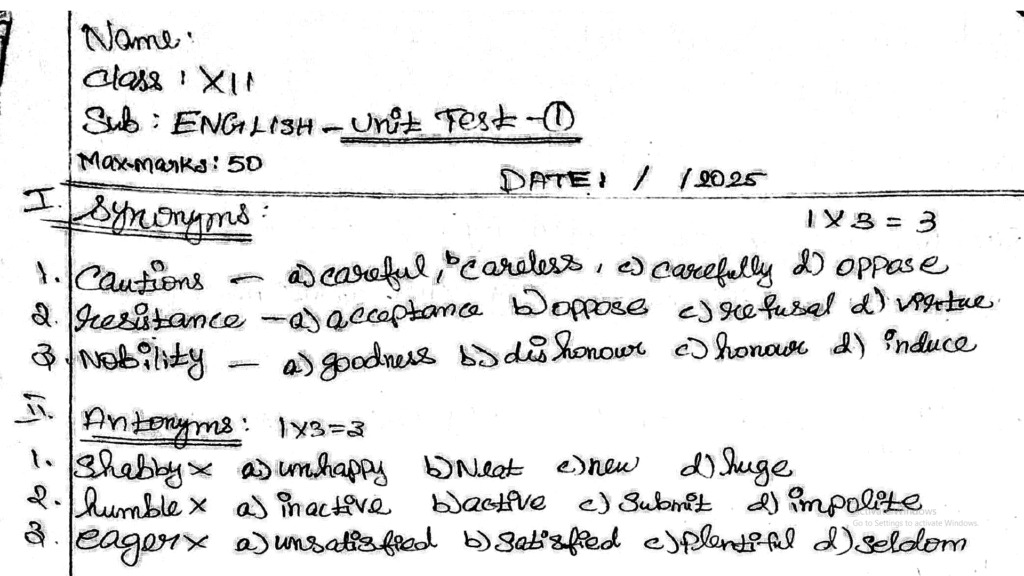 Name:
Class : XII
Sub : ENGLISH - Unit Test - ①
Max-marks: 50
DATE: / /2025
I. Synonyms: 1 X 3 = 3
1. Cautions - a) careful, b careless, c) carefully d) oppose
2. Resistance - a) acceptance b) oppose c) refusal d) virtue
3. Nobility - a) goodness b) dishonour c) honour d) induce
II. Antonyms: 1x3=3
1. Shabby x a) unhappy b) Neat c) new d) huge
2. humble x a) inactive b) active c) Submit d) impolite
3. eager x a) unsatisfied b) satisfied c) plentiful d) seldom
Go to Settings to activate Windows.